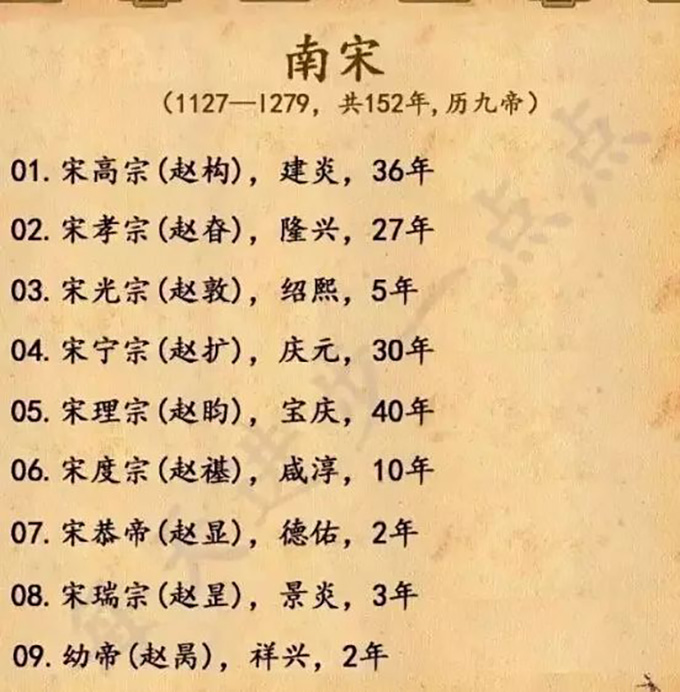 南宋
（1127—1279，共152年，历九帝）
01. 宋高宗(赵构)，建炎，36年
02. 宋孝宗(赵昚)，隆兴，27年
03. 宋光宗(赵敦)，绍熙，5年
04. 宋宁宗(赵扩)，庆元，30年
05. 宋理宗(赵昀)，宝庆，40年
06. 宋度宗(赵禥)，咸淳，10年
07. 宋恭帝(赵显)，德佑，2年
08. 宋瑞宗(赵昰)，景炎，3年
09. 幼帝(赵昺)，祥兴，2年
每天进步一点点